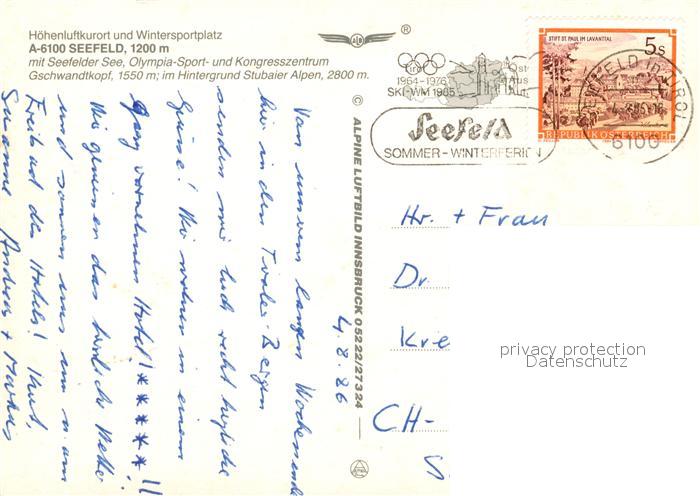 Höhenluftkurort und Wintersportplatz
A-6100 SEEFELD, 1200 m
mit Seefelder See, Olympia-Sport- und Kongresszentrum
Gschwandtkopf, 1550 m; im Hintergrund Stubaier Alpen, 2800 m.
ALB
®
Tirol
1964-1976
SKI-WM 1985
Seefeld
SOMMER-WINTERFERIEN
STIFT ST. PAUL IM LAVANTTAL
5 S
REPUBLIK ÖSTERREICH
6100
© ALPINE LUFTBILD INNSBRUCK 05222/27324
4.8.86
Von unserem langen Wochenende
hier in den Tiroler Bergen
senden wir Euch recht herzliche
Grüsse! Wir wohnen in einem
ganz vornehmen Hotel! *****!!
Wir geniessen das herrliche Wetter
und sonnen uns am
Freibad des Hotels!
Susanne Andreas + Markus
Hr. + Frau
Dr.
Krie
CH-
privacy protection
Datenschutz